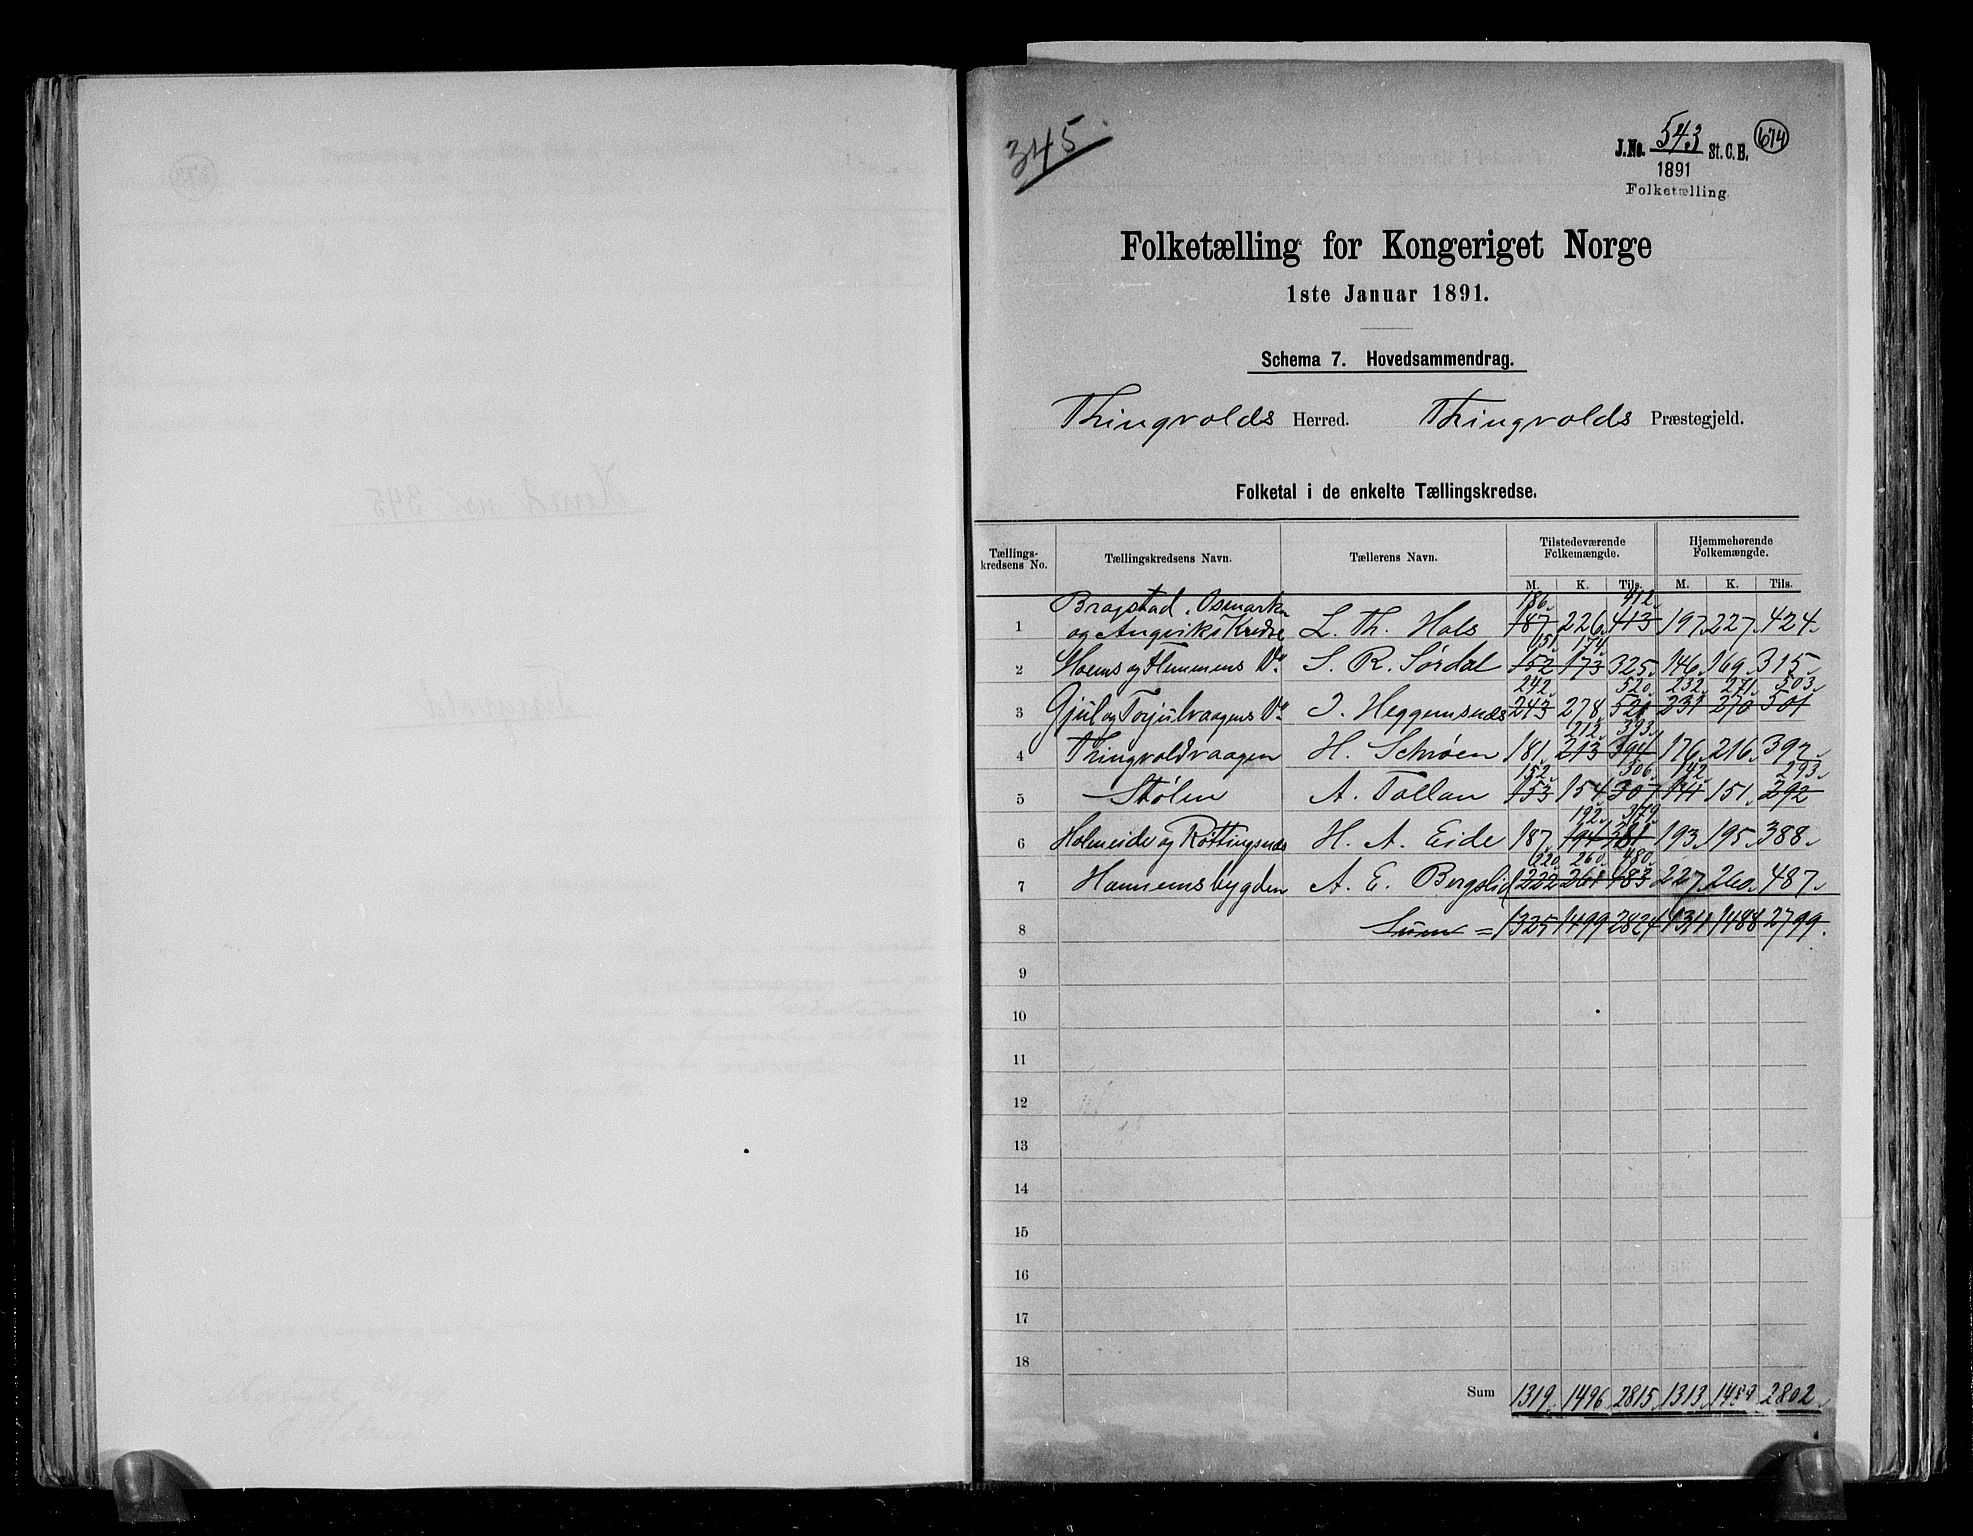 345
J.No. 543 St.C.B. 674
1891
Folketælling
Folketælling for Kongeriget Norge
1ste Januar 1891.
Schema 7. Hovedsammendrag.
Thingvolds Herred. Thingvolds Præstegjeld.
Folketal i de enkelte Tællingskredse.
Tællings-kredsens No. Tællingskredsens Navn. Tællerens Navn. Tilstedeværende Folkemængde. Hjemmehørende Folkemængde.
M. K. Tils. M. K. Tils.
186. 412.
1 Bragstad, Osmarka og Angviks Kredse L. Th. Hals 187 226. 413 197. 227. 424.
151. 174.
2 Hoems og Flemmens Do. S. R. Sørdal 152 173 325. 146. 169. 315.
242. 520. 232. 271. 503.
3 Gjul og Torjulvaagens Do. J. Heggemsnæs 243 278. 521 231 270 501
212. 393.
4 Thingvoldvaagen H. Schrøen 181. 213 394 176. 216. 392.
152. 306. 142. 293.
5 Stølen A. Tallan 153 154 307 141 151. 292
192. 379.
6 Holmeide og Røttingsnæs H. A. Eide 187. 194 381 193. 195. 388.
220. 260. 480.
7 Hanemsbygden A. E. Bergslid 222 261 483 227. 260. 487.
8 Sum = 1325 1499 2824 1311 1488 2799.
9
10
11
12
13
14
15
16
17
18
Sum 1319. 1496. 2815. 1313. 1489 2802.